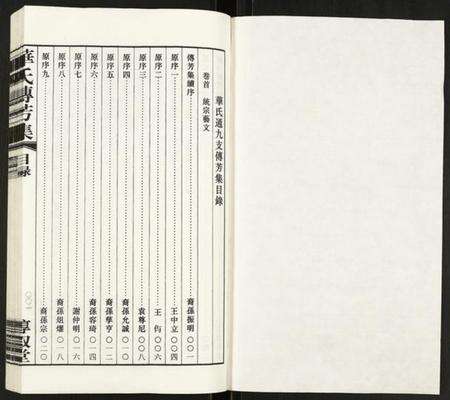 華氏通九支傳芳集目錄
卷首 統宗藝文
傳芳集續序 裔孫振明 〇〇一
原序一 王中立 〇〇四
原序二 王 〇〇六
原序三 袁尊尼 〇〇八
原序四 裔孫允誠 〇一〇
原序五 裔孫學亨 〇一二
原序六 裔孫容琦 〇一四
原序七 謝仲明 〇一六
原序八 裔孫 〇一八
原序九 裔孫宗 〇二〇
華氏傳芳集
目錄